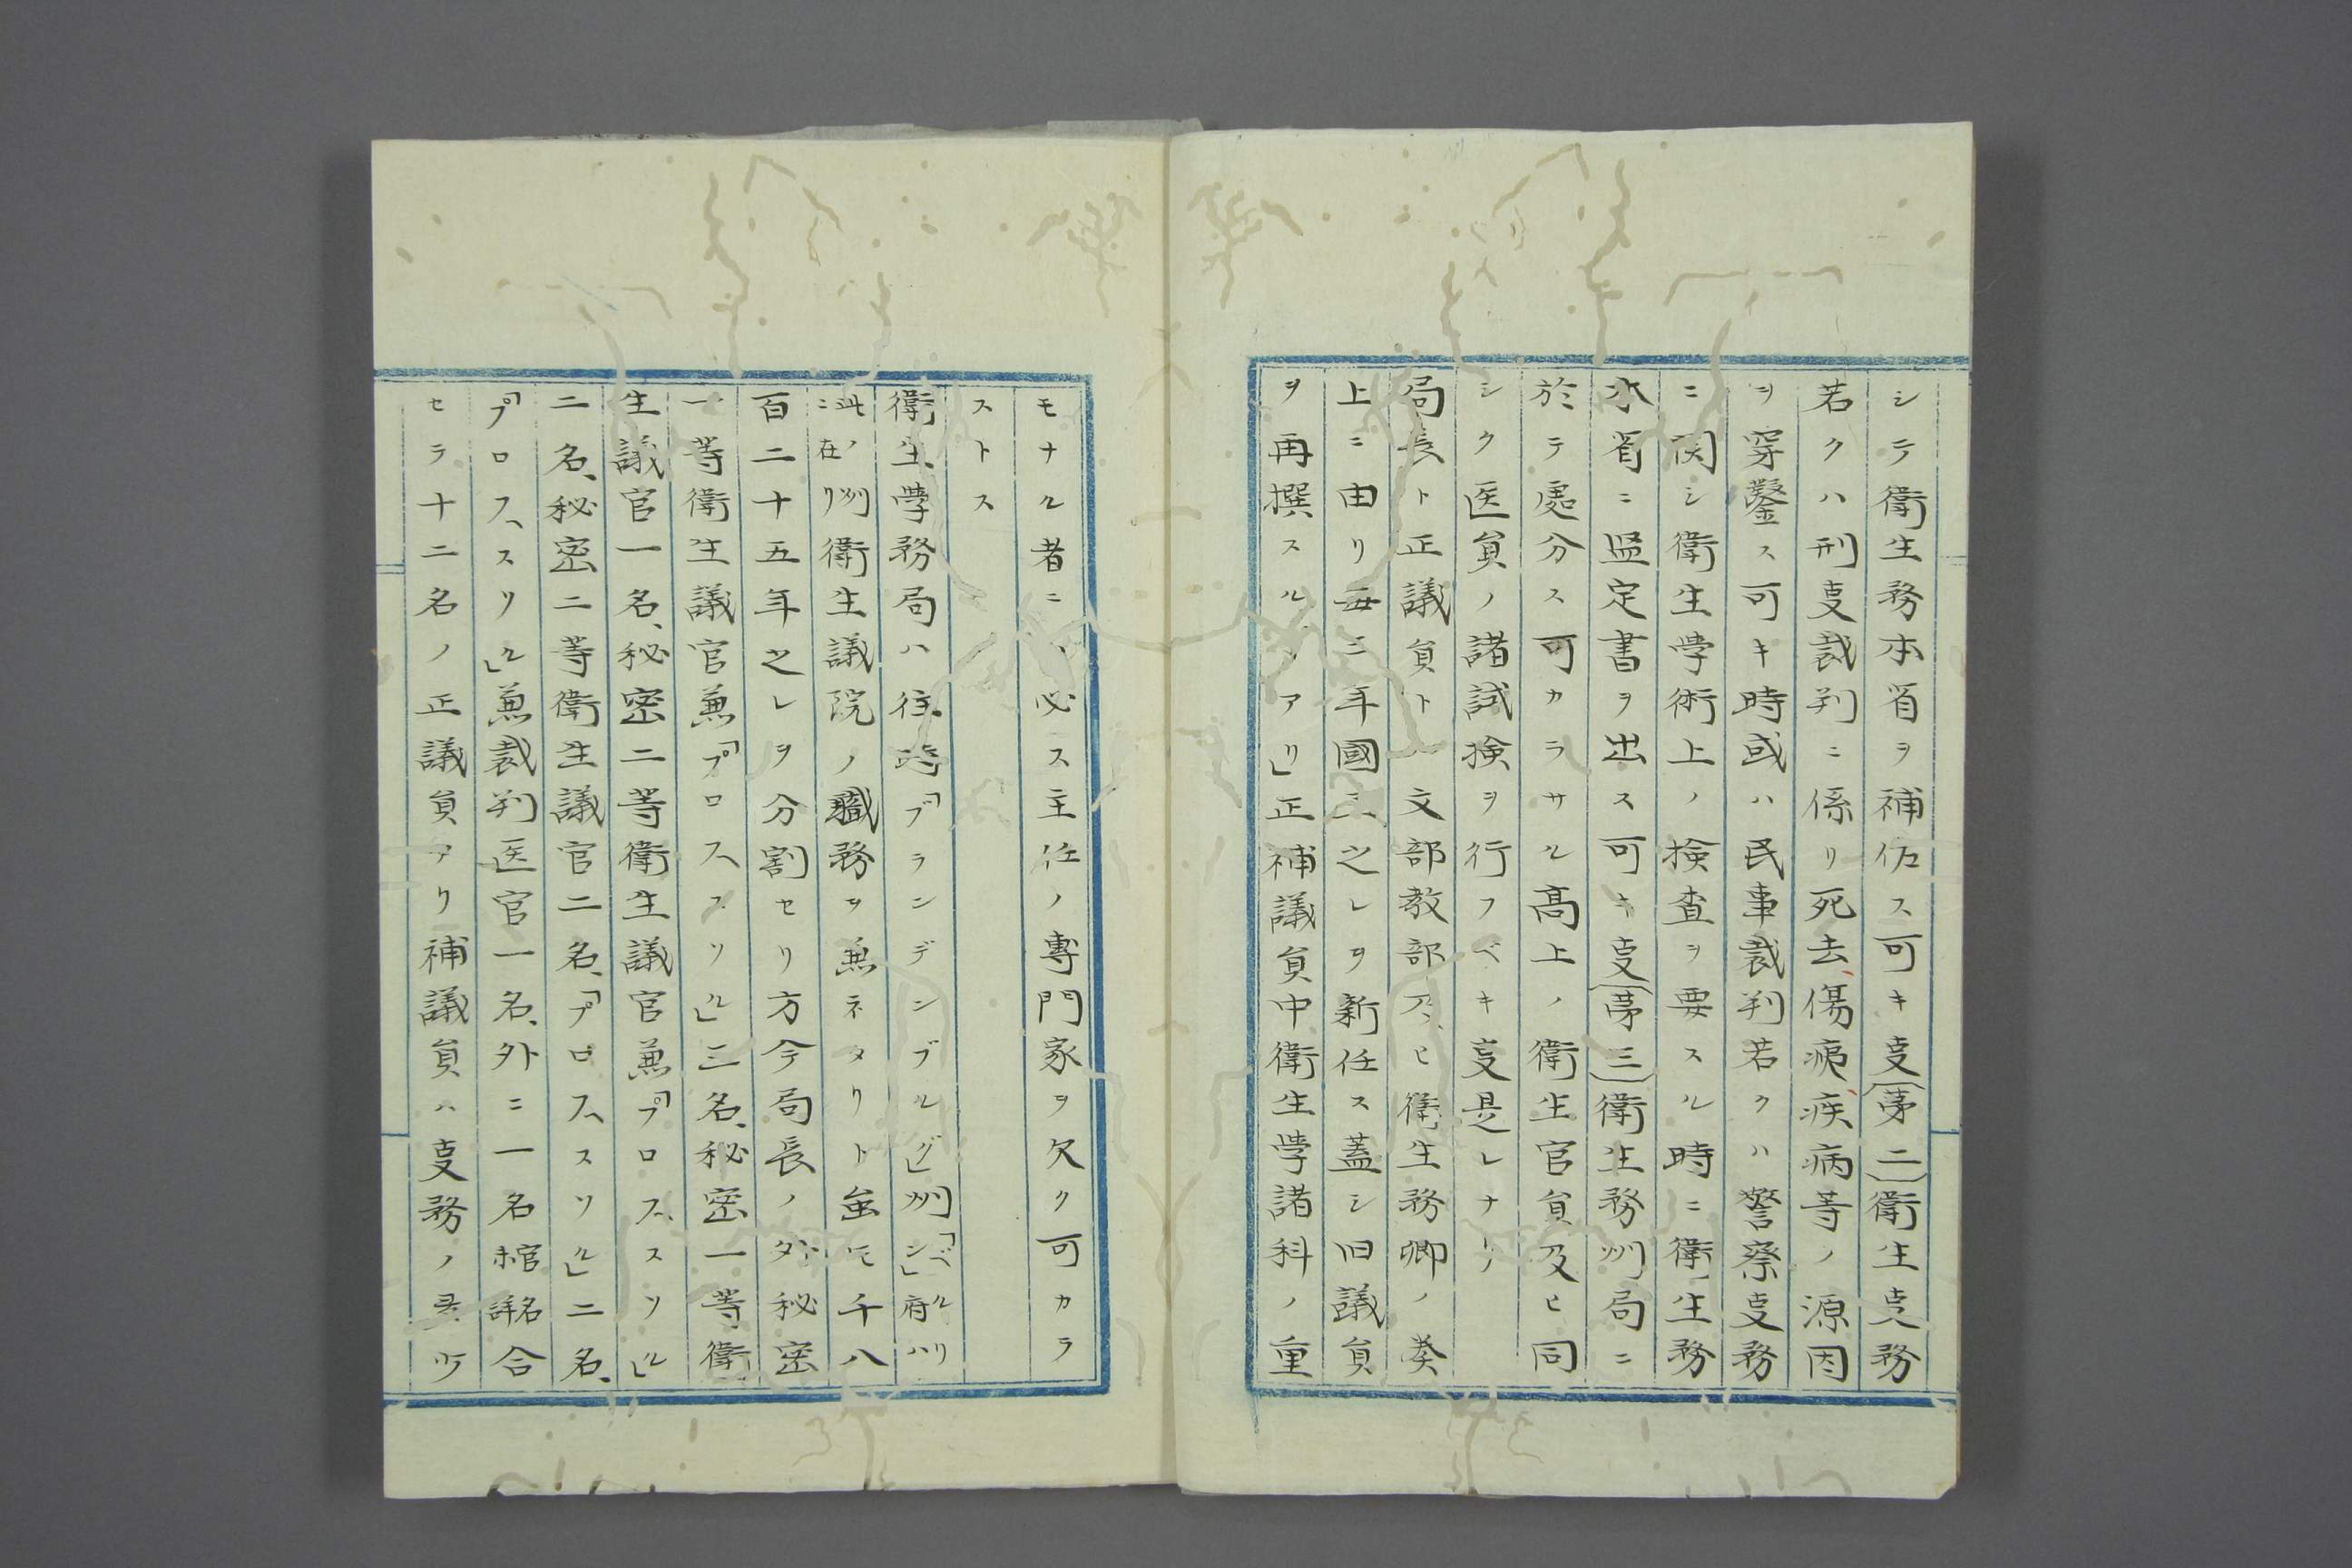 シテ衛生務本省ヲ補佐ス可キ叓(第二)衛生叓務
若クハ刑叓裁判ニ係リ死去、傷痍、疾病等ノ源因
ヲ穿鑿ス可キ時或ハ民事裁判若クハ警察叓務
ニ関シ衛生学術上ノ検査ヲ要スル時ニ衛生務
本省ニ鑑定書ヲ出ス可キ叓(第三)衛生務州局ニ
於テ處分ス可カラサル高上ノ衛生官員及ヒ同
シク医員ノ諸試検ヲ行フベキ叓是レナリ
局長ト正議員トハ文部教部及ヒ衛生務卿ノ奏
上ニ由リ毎三年國王之レヲ新任ス蓋シ旧議員
ヲ再撰スルヿアリ」正補議員中衛生学諸科ノ重
モナル者ニハ必ス主任ノ專門家ヲ欠ク可カラ
ストス
衛生学務局ハ往時「ブランデンブルグ」州「ベルリン」府ハ
此ノ州ニ在リ衛生議院ノ職務ヲ兼ネタリト雖モ千八
百二十五年之レヲ分割セリ方今局長ノ外秘密
一等衛生議官兼「プロフェスソル」三名、秘密一等衛
生議官一名、秘密二等衛生議官兼「プロフェスソル」
二名、秘密二等衛生議官二名、「プロフェスソル」二名、
「プロフェスソル」兼裁判医官一名、外ニ一名官名未詳合
セテ十二名ノ正議員アリ補議員ハ叓務ノ景況